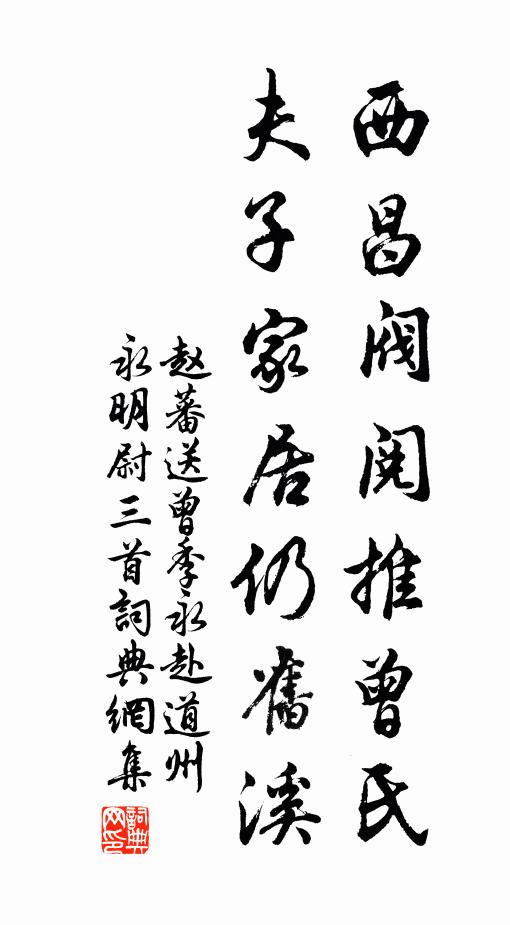 西昌阀阅推曾氏
夫子家居仍舊溪
赵蕃送曾季永赴道州
永明尉三首詞典網集
詞典
网印